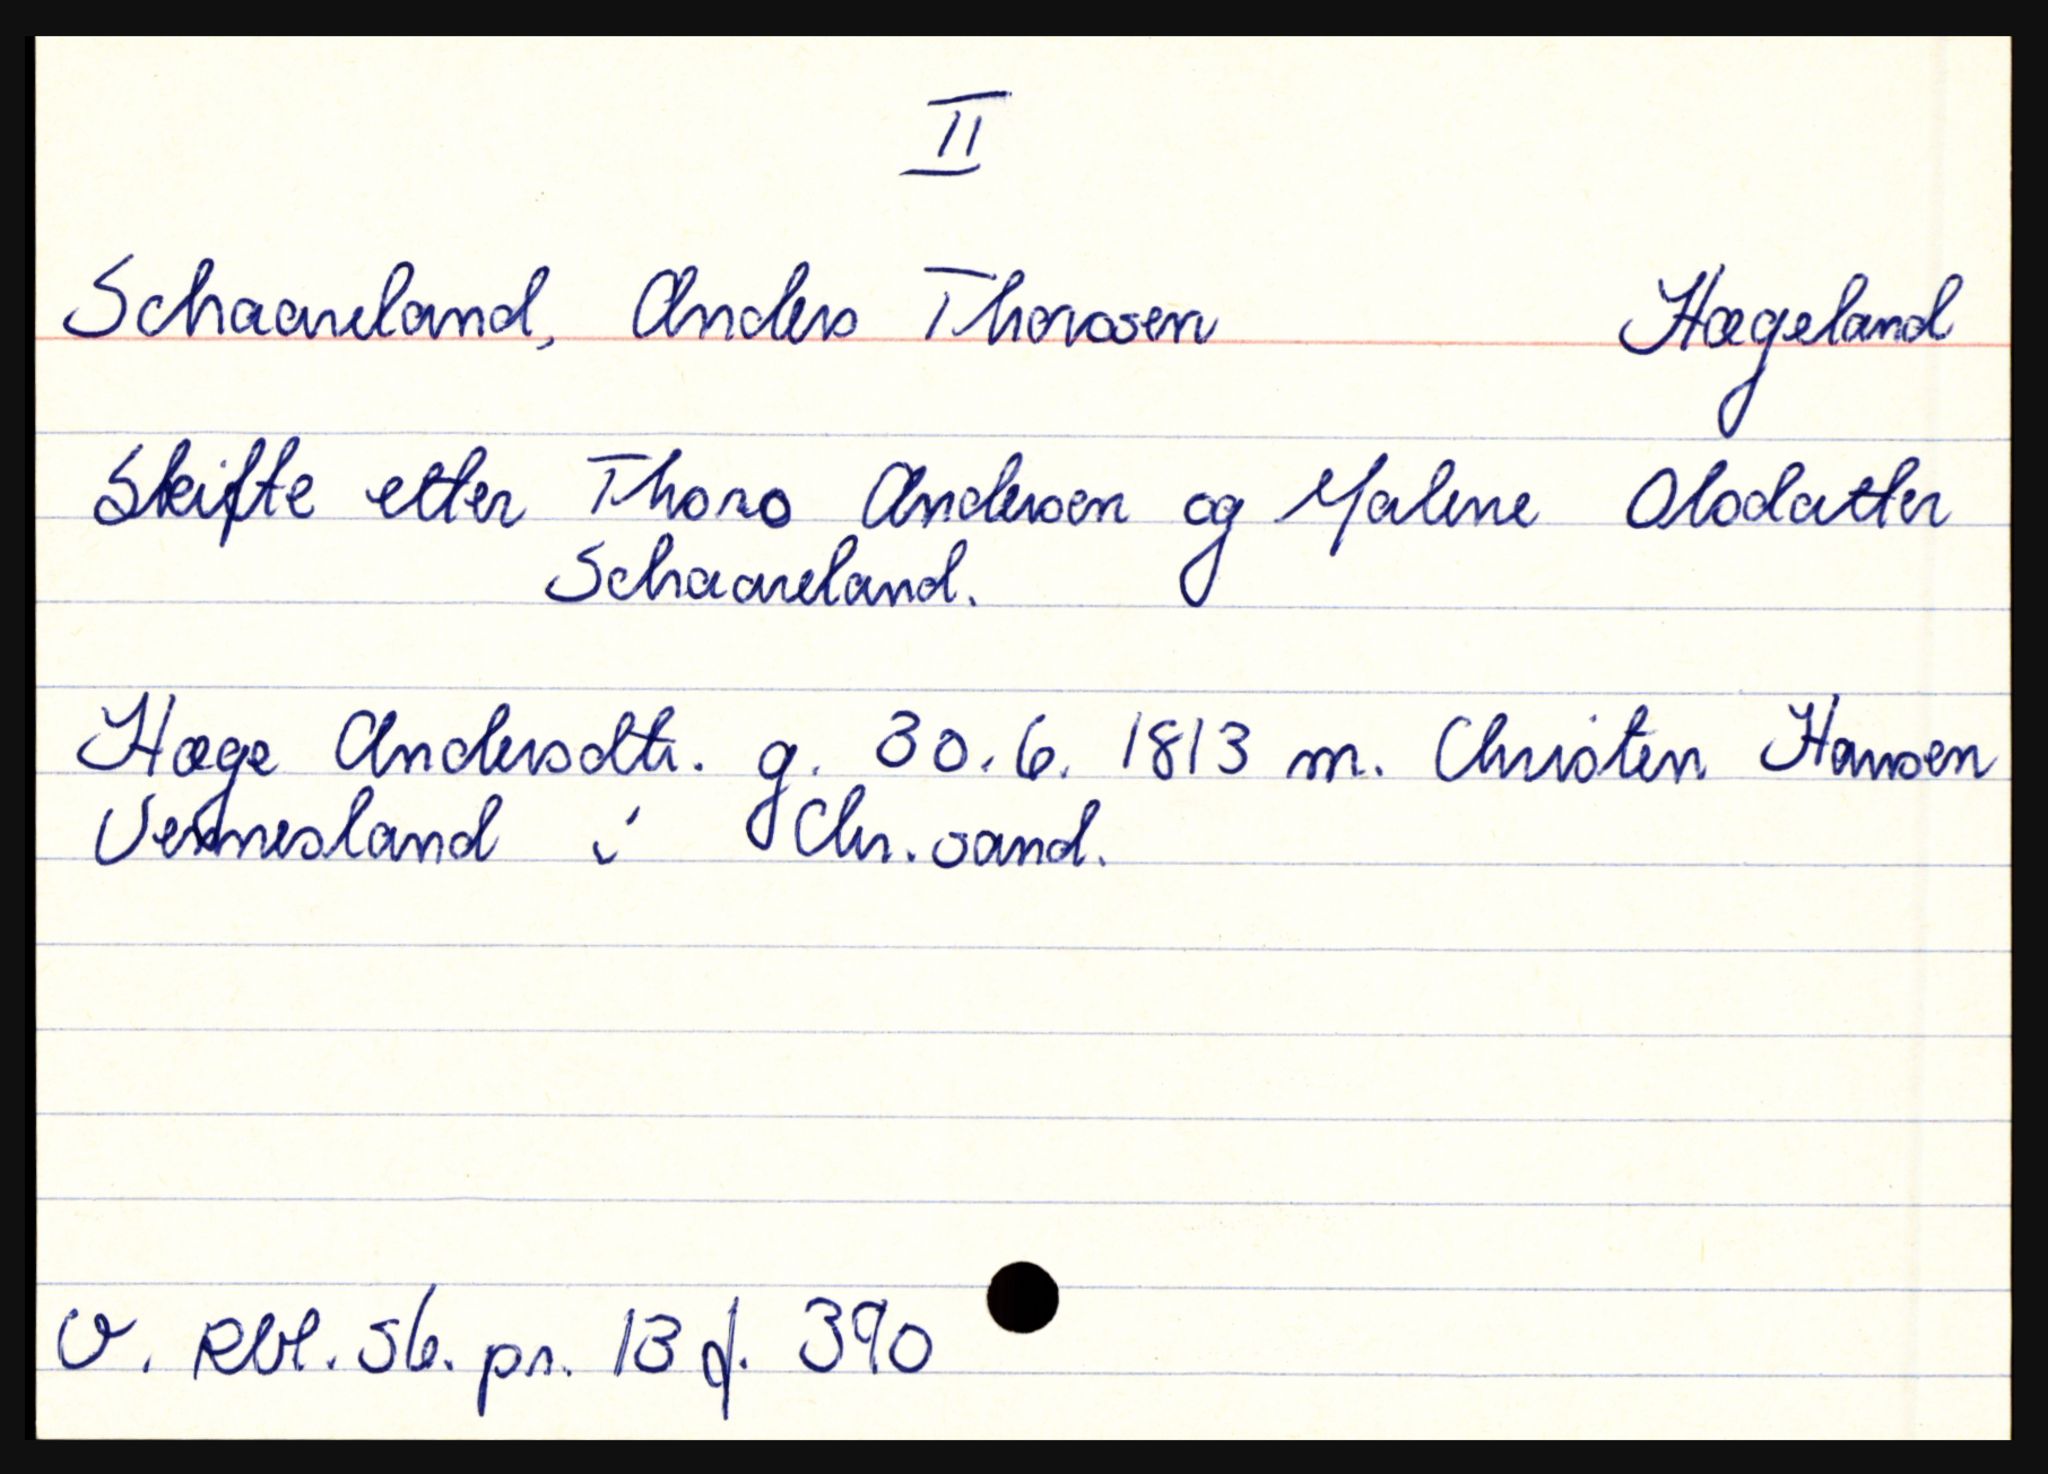 II
Schaareland, Anders Thorosen Hægeland
Skifte etter Thoro Andersen og Malene Olsdatter
Schaareland.
Hæge Andersdtr. g. 30.6. 1813 m. Christen Hansen
Vennesland i Chr.sand.
V. Rbl. 56. pr. 13 f. 390